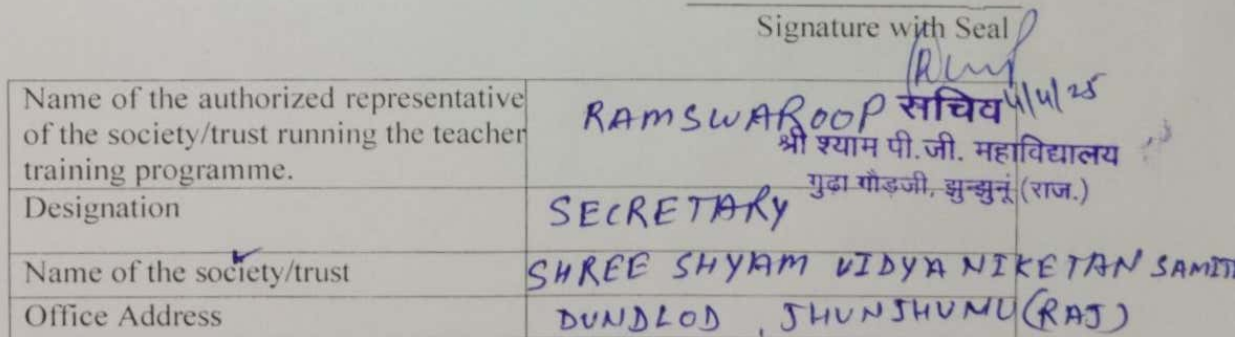 Signature with Seal
4/4/25
Name of the authorized representative of the society/trust running the teacher training programme.
RAMSWAROOP सचिव
श्री श्याम पी.जी. महाविद्यालय
गुढ़ा गौड़जी, झुन्झुनूं (राज.)
Designation
SECRETARY
Name of the society/trust
SHREE SHYAM VIDYA NIKETAN SAMITI
Office Address
DUNDLOD , JHUNJHUNU (RAJ)